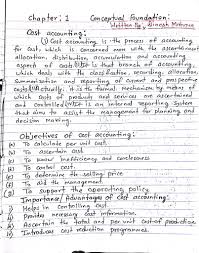 Chapter: 1 Conceptual Foundation:
Written By:
Cost accounting:
(i) Cost accounting is the process of accounting
for cost, which is concerned more with the ascertainment
allocation, distribution, accumulation and accounting
aspects of cost. It is that branch of accounting,
which deals with the classification, recording, allocation,
summarization and reporting of current and prospective
costs. Actually, it is the formal mechanism by means of
which costs of products and services are ascertained
and controlled. It is an internal reporting system
that aims to assist the management for planning and
decision making.
Objectives of cost accounting:
To calculate per unit cost.
To ascertain cost
To know inefficiency and
To control cost
To determine the selling price
To aid the management
To support the operating policy
Importance/Advantages of cost accounting:
Helps in controlling cost.
Provides necessary cost information.
Ascertain the total and per unit cost of production
Introduces cost reduction programmes.